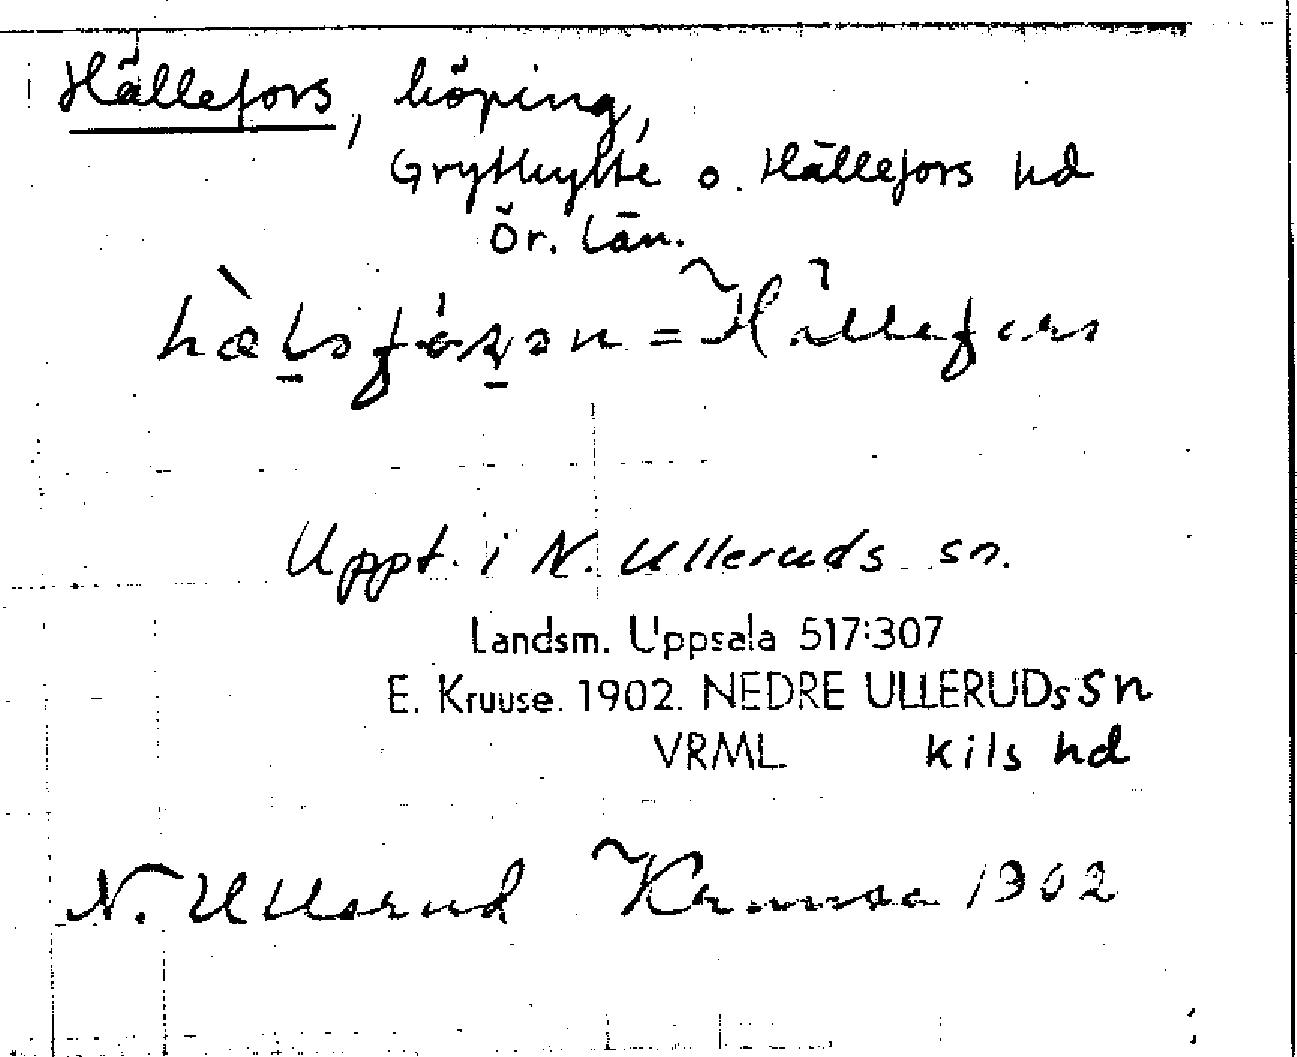 Hällefors, köping,
Grythytte o. Hällefors hd
Ör. län.
= Hällefors
Uppt. i N. Ulleruds sn.
Landsm. Uppsala 517:307
E. Kruuse. 1902. NEDRE ULLERUDs sn
VRML. Kils hd
N. Ullerud Kruuse 1902